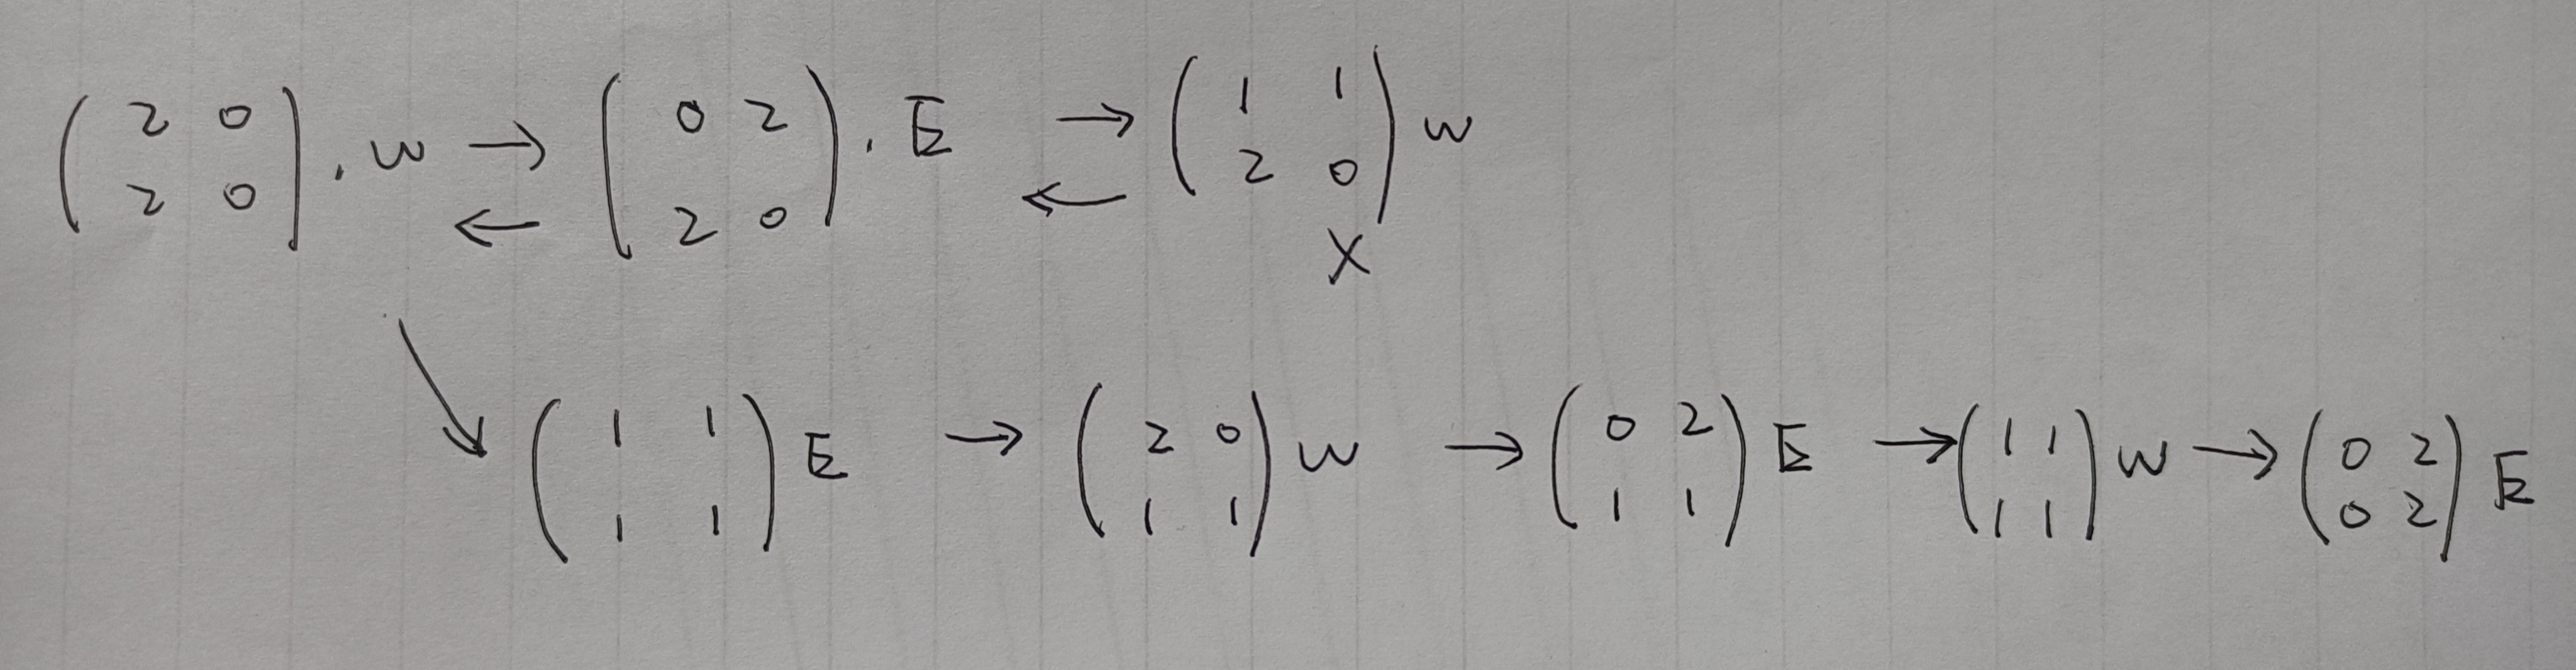 ( 2 0 / 2 0 ) . W → ← ( 0 2 / 2 0 ) . E → ← ( 1 1 / 2 0 ) W
X
↘ ( 1 1 / 1 1 ) E → ( 2 0 / 1 1 ) W → ( 0 2 / 1 1 ) E → ( 1 1 / 1 1 ) W → ( 0 2 / 0 2 ) E